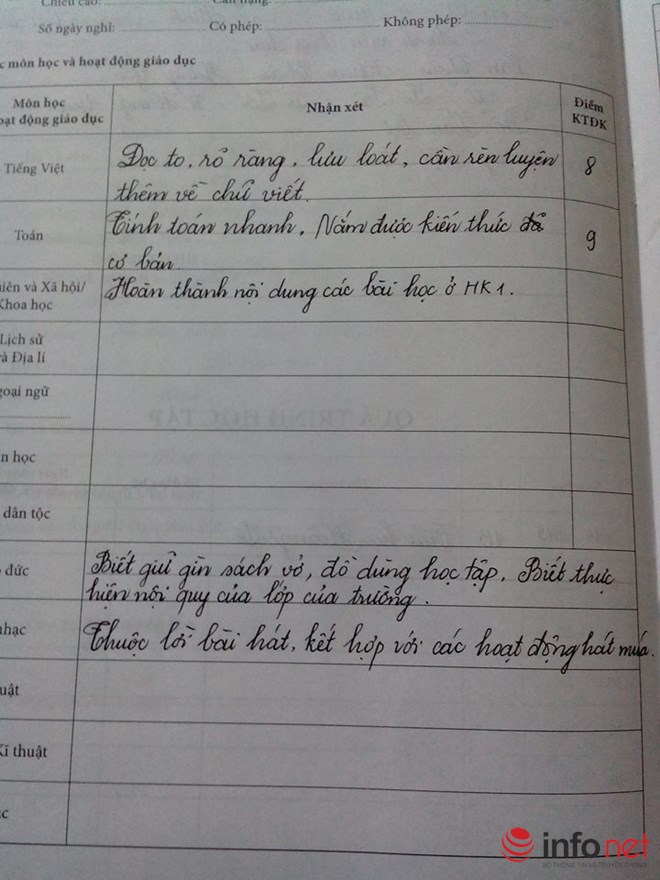 Chiều cao: Cân nặng:
Số ngày nghỉ: Có phép: Không phép:
c môn học và hoạt động giáo dục
Môn học
oạt động giáo dục
Nhận xét
Điểm
KTĐK
Tiếng Việt
Đọc to, rỏ ràng, lưu loát, cần rèn luyện
thêm về chữ viết.
8
Toán
Tính toán nhanh, Nắm được kiến thức
cơ bản.
9
iên và Xã hội/
Khoa học
Hoàn thành nội dung các bài học ở HK1.
Lịch sử
à Địa lí
goại ngữ
n học
dân tộc
đức
Biết giữ gìn sách vở, đồ dùng học tập. Biết thực
hiện nội quy của lớp của trường.
nhạc
Thuộc lời bài hát, kết hợp với các hoạt động hát múa.
uật
Kĩ thuật
c
QUÁ TRÌNH HỌC TẬP
infonet